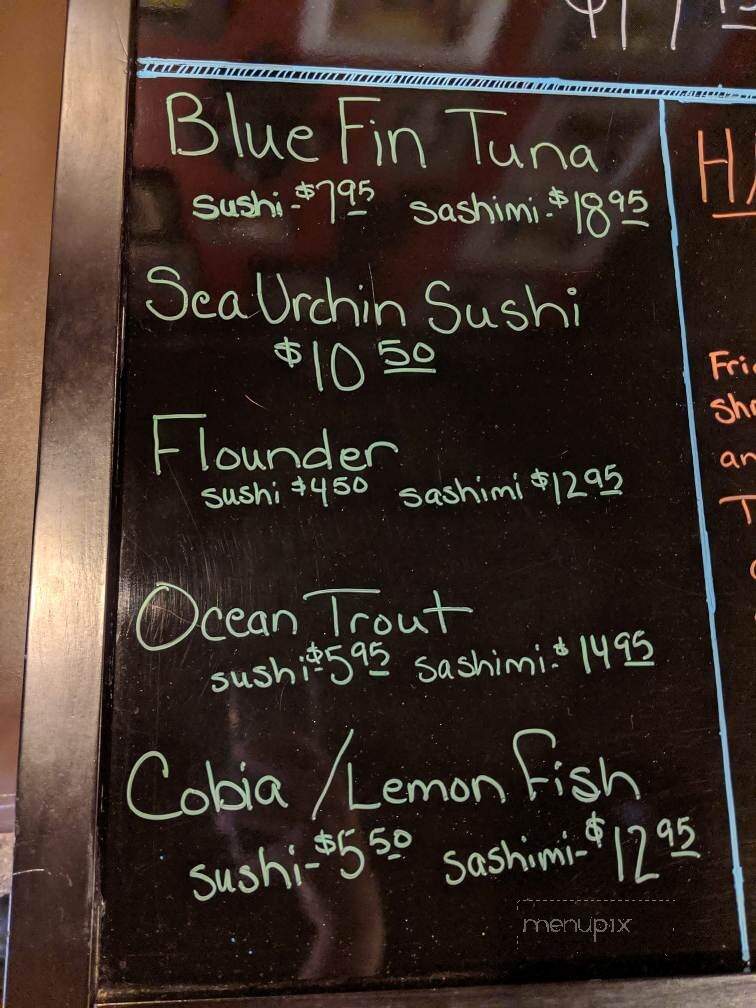 Blue Fin Tuna
sushi-$7.95 sashimi-$18.95
Sea Urchin Sushi
$10 50
Flounder
sushi $4 50 sashimi $12 95
Ocean Trout
sushi-$5 95 sashimi-$14 95
Cobia / Lemon Fish
sushi-$5 50 sashimi-$12 95
menupix